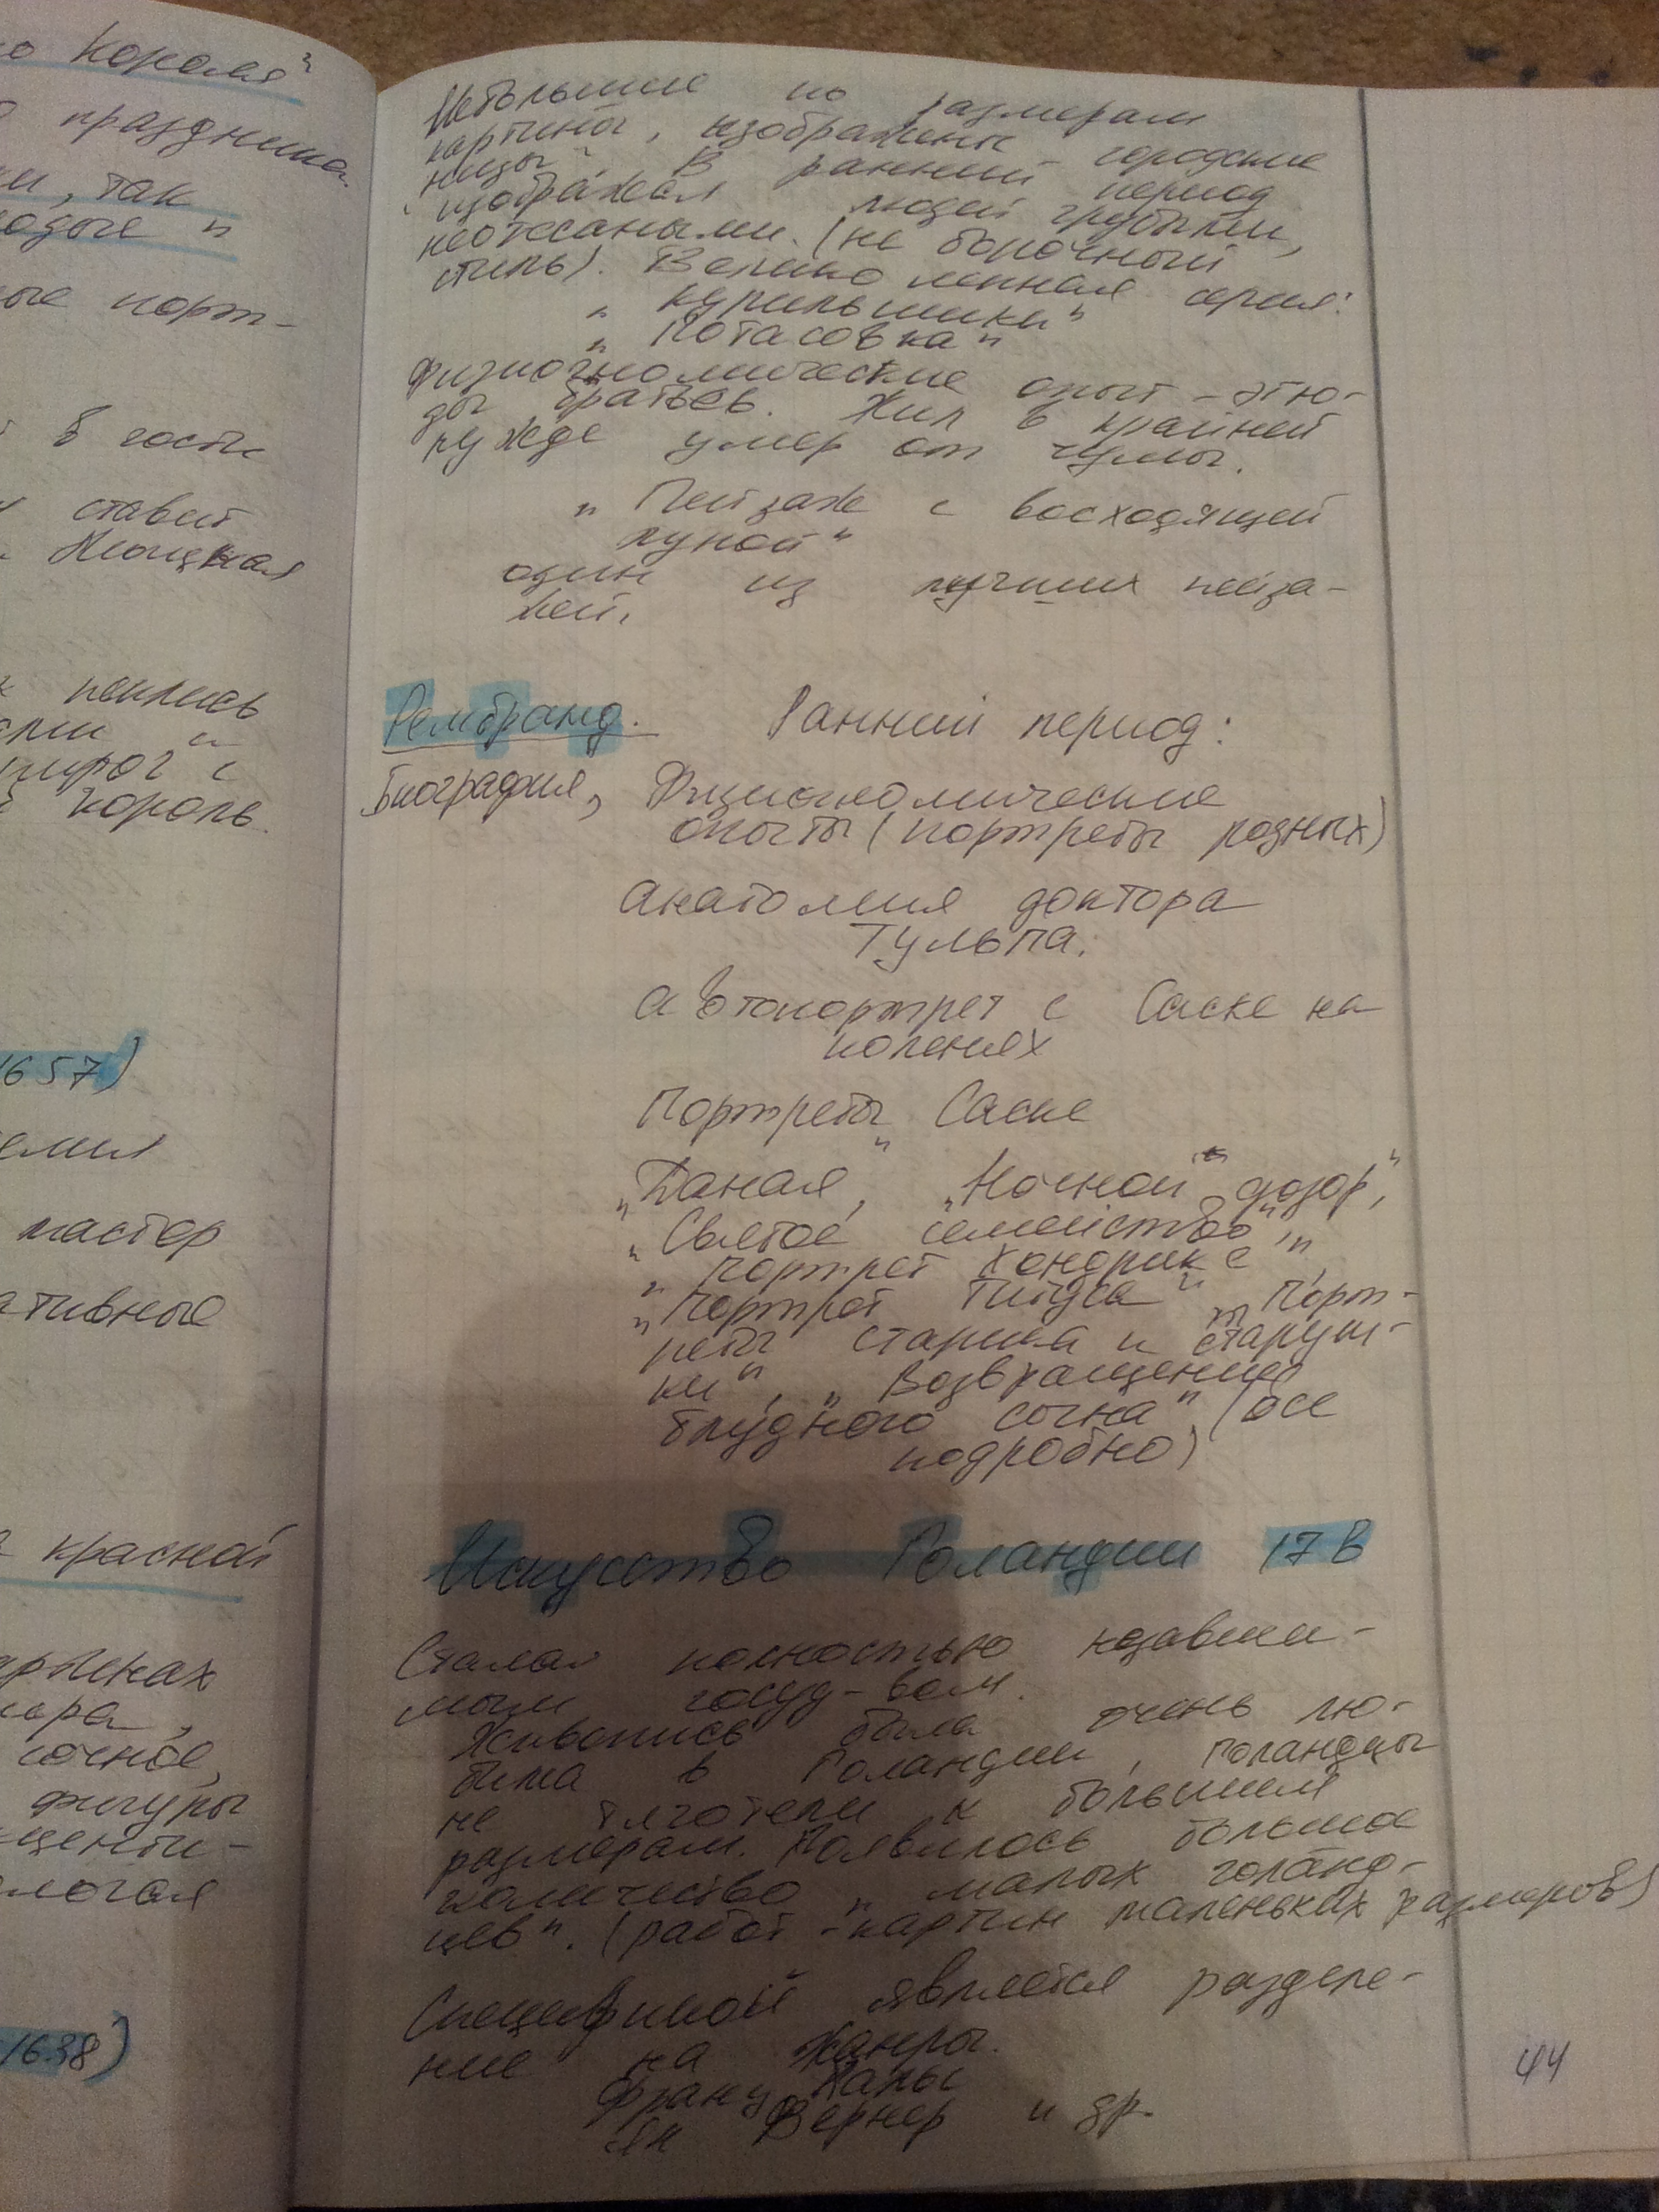 о короля"
праздника.
ки, так
лодые "
ные порт-
в гости
ставит
Меицкая
пеклись
пирог с
король.
1657)
емия
мастер
ативные
красной
ярынках
мора,
сочное,
фигуры
центи-
могая
-1638)
Небольшие по размерам
картины, изображены городские
низы". В ранний период
изображал людей грубыми,
неотесаными. (не барочный
стиль). Великоленная серия:
"курильшики"
"Потасовка"
Физиогномические опыт - этю-
ды братьев. Жил в крайней
нужде умер от чумы.
"Пейзаж с восходящей
луной"
один из лучших пейза-
жей.
Рембранд. Ранний период:
Биография, Физиогномические
опыты (портреты родных)
Анатомия доктора
Тульпа.
Автопортрет с Саске на
коленях
Портреты Саске
"Даная", "Ночной дозор",
"Святое семейство",
"Портрет Хендрике"
"Портрет Титуса" "Порт-
реты старика и старуш-
ки", "Возвращение
блудного сына" (все
подробно)
Искусство Голандии 17 в
Стала полностью независи-
мым госуд-вом.
Живопись была очень лю-
бима в Голандии, голандцы
не тяготели к большим
размерам. Появилось большое
количество "малых голанд-
цев". (работ - картин маленьких размеров)
Спецификой является разделе-
ние на жанры.
Франц Халс
Ян Вернер и др.
44